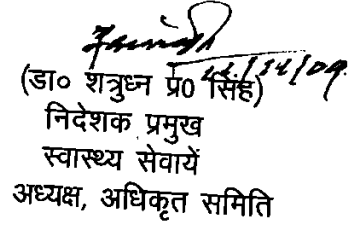 (डा० शत्रुध्न प्र0 सिंह)
निदेशक प्रमुख
स्वास्थ्य सेवायें
अध्यक्ष, अधिकृत समिति